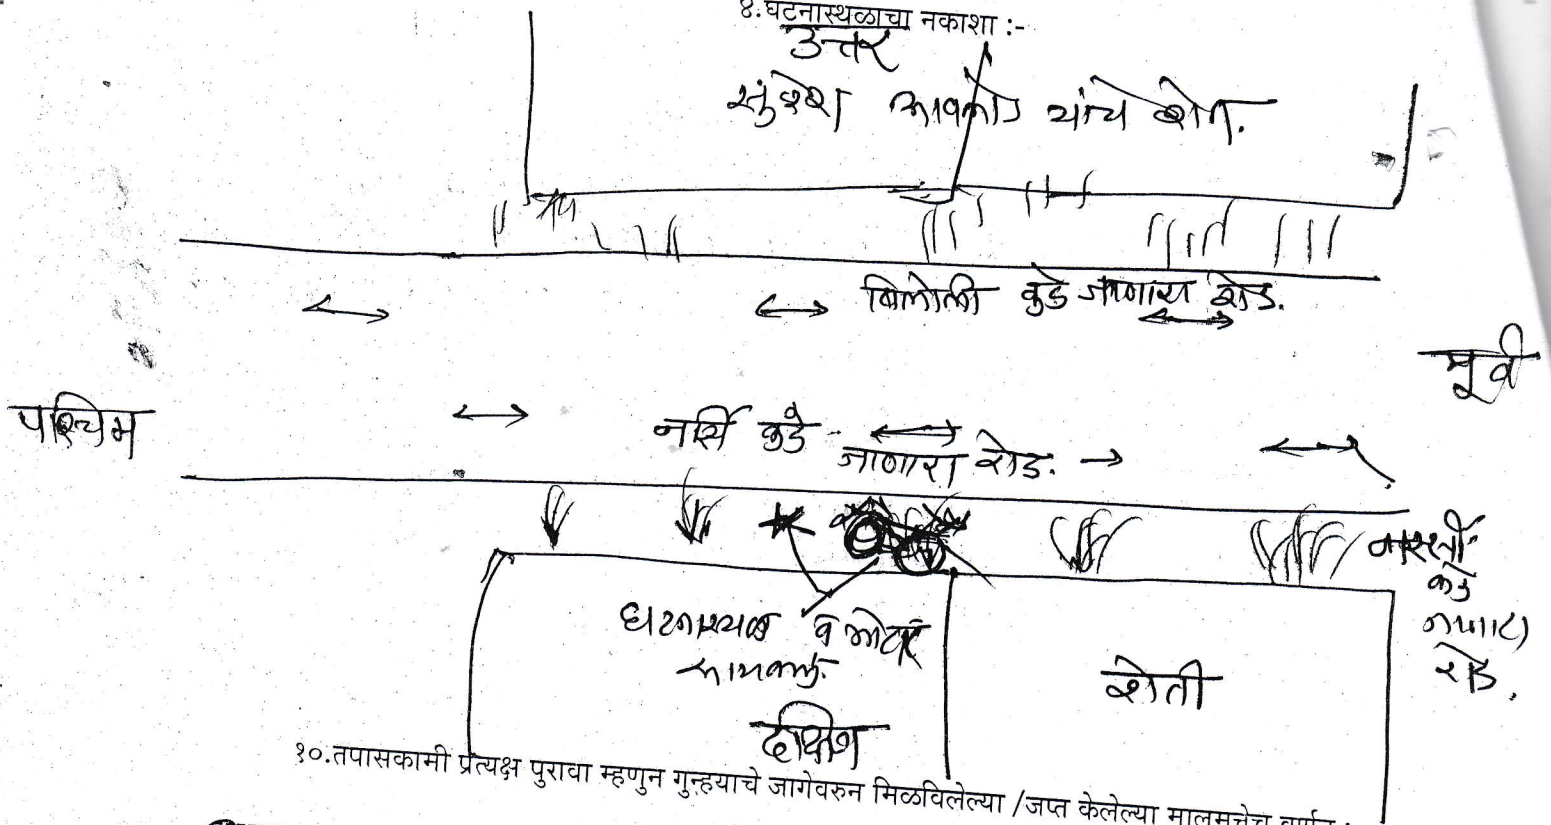 ४.घटनास्थळाचा नकाशा :-
उत्तर
यांचे शेत.
बिलोली कडे जाणारा रोड.
पूर्व
पश्चिम
नर्सि कडे
जाणारा रोड.
कडे
रोड.
घटनास्थळ व मोटार
सायकल.
शेती
दक्षिण
१०.तपासकामी प्रत्यक्ष पुरावा म्हणुन गुन्हयाचे जागेवरुन मिळविलेल्या /जप्त केलेल्या मालमत्तेचे वर्णन :